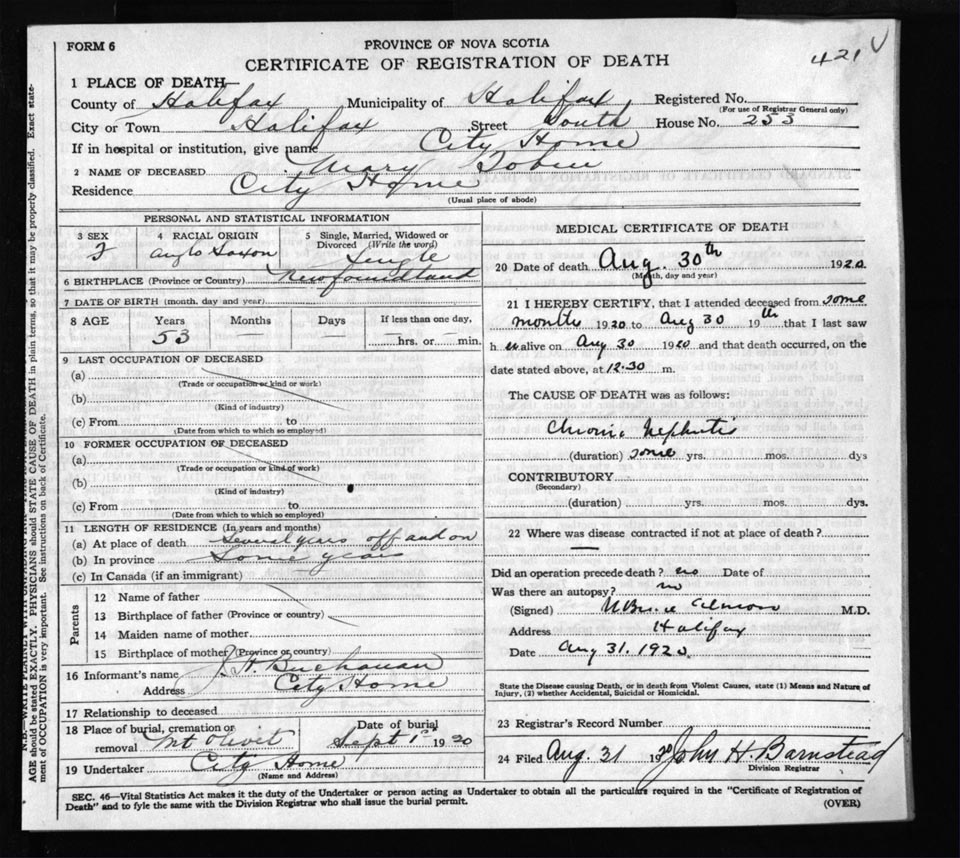 FORM 6
PROVINCE OF NOVA SCOTIA
CERTIFICATE OF REGISTRATION OF DEATH
421
1 PLACE OF DEATH—
County of Halifax Municipality of Halifax Registered No.
(For use of Registrar General only)
City or Town Halifax Street South House No. 253
If in hospital or institution, give name City Home
2 NAME OF DECEASED Mary Tobin
Residence City Home
(Usual place of abode)
PERSONAL AND STATISTICAL INFORMATION
3 SEX 4 RACIAL ORIGIN 5 Single, Married, Widowed or Divorced (Write the word)
F Anglo Saxon Single
6 BIRTHPLACE (Province or Country) Newfoundland
7 DATE OF BIRTH (month, day and year)
8 AGE Years Months Days If less than one day,
53 — — hrs. or min.
9 LAST OCCUPATION OF DECEASED
(a)
(Trade or occupation or kind or work)
(b)
(Kind of industry)
(c) From to
(Date from which to which so employed)
10 FORMER OCCUPATION OF DECEASED
(a)
(Trade or occupation or kind of work)
(b)
(Kind of industry)
(c) From to
(Date from which to which so employed)
11 LENGTH OF RESIDENCE (In years and months)
(a) At place of death Several years off and on
(b) In province Some years
(c) In Canada (if an immigrant)
Parents
12 Name of father
13 Birthplace of father (Province or country)
14 Maiden name of mother
15 Birthplace of mother (Province or country)
16 Informant's name J. H. Buchanan
Address City Home
17 Relationship to deceased
18 Place of burial, cremation or removal Mt Olivet Date of burial Sept 1st 1920
19 Undertaker City Home
(Name and Address)
MEDICAL CERTIFICATE OF DEATH
20 Date of death Aug. 30th 1920
(Month, day and year)
21 I HEREBY CERTIFY, that I attended deceased from some
months 1920 to Aug 30th 19 that I last saw
h er alive on Aug 30 1920 and that death occurred, on the
date stated above, at 12.30 m.
The CAUSE OF DEATH was as follows:
Chronic Nephritis
(duration) some yrs. mos. dys
CONTRIBUTORY
(Secondary)
(duration) yrs. mos. dys.
22 Where was disease contracted if not at place of death?
Did an operation precede death? no Date of
Was there an autopsy? no
(Signed) M.D.
Address Halifax
Date Aug 31. 1920
State the Disease causing Death, or in death from Violent Causes, state (1) Means and Nature of
Injury, (2) whether Accidental, Suicidal or Homicidal.
23 Registrar's Record Number
24 Filed Aug. 31 1920 John H Barnstead
Division Registrar
SEC. 46—Vital Statistics Act makes it the duty of the Undertaker or person acting as Undertaker to obtain all the particulars required in the "Certificate of Registration of
Death" and to fyle the same with the Division Registrar who shall issue the burial permit.
(OVER)
AGE should be stated EXACTLY. PHYSICIANS should STATE CAUSE OF DEATH in plain terms, so that it may be properly classified. Exact state-
ment of OCCUPATION is very important. See instructions on back of Certificate.